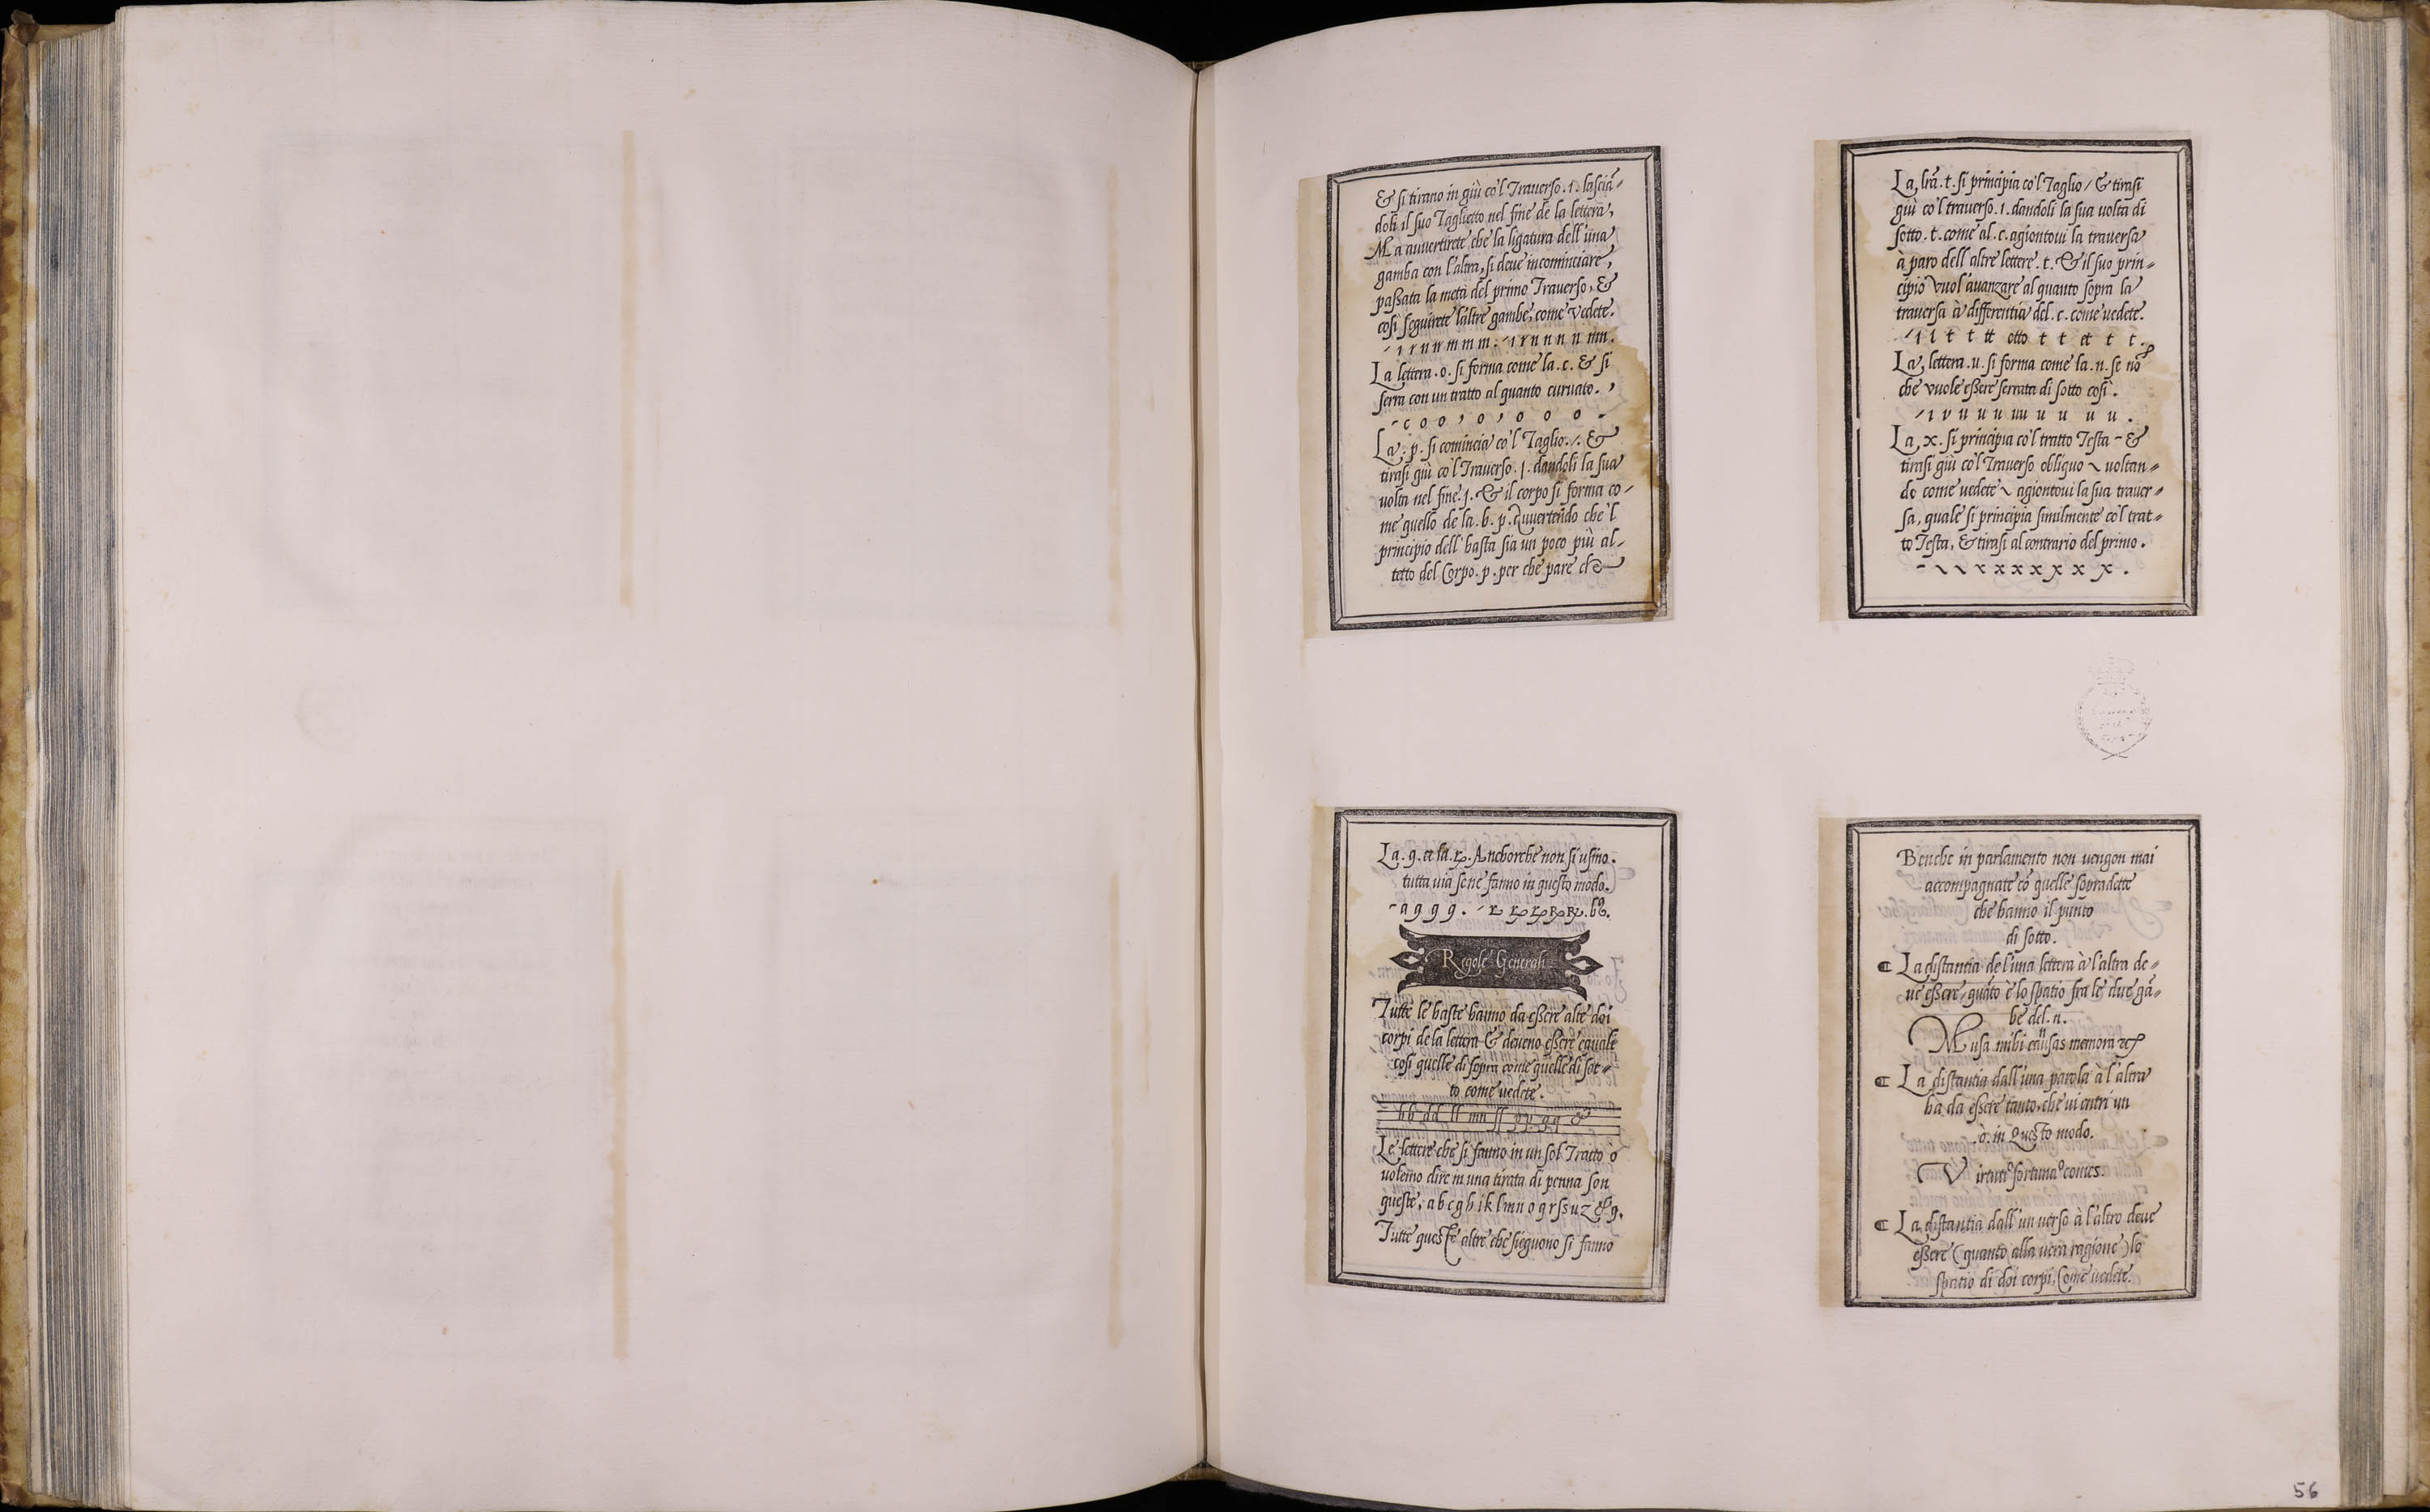 & si tirano in giù co'l Trauerso .ı. lasciā-
doli il suo Taglietto nel fine de la lettera,
Ma auuertirete che la ligatura dell'una
gamba con l'altra, si deue incominciare,
passata la metà del primo Trauerso, &
così seguirete l'altre gambe, come vedete.
La lettera .o. si forma come la .c. & si
serra con un tratto al quanto curuato.
- c o o , o , o o o -
La .p. si comincia co'l Taglio ./. &
tirasi giù co'l Trauerso .ſ. dandoli la sua
volta nel fine .ſ. & il corpo si forma co-
me quello de la .b. p. Auuertendo che'l
principio dell'hasta sia un poco più al-
tetto del Corpo .p. per che pare che
La, lrā .t. si principia co'l Taglio / & tirasi
giù co'l trauerso .ı. dandoli la sua uolta di
sotto .t. come al .c. agiontoui la trauersa
à paro dell'altre lettere .t. & il suo prin-
cipio vuol'auanzare al quanto sopra la
trauersa à differentia del .c. come uedete.
- ı ı t t tt otto t t et t t.
La, lettera .u. si forma come la .n. se nō
che vuole essere serrata di sotto così.
- ı v u u u uu u u u u.
La, x. si principia co'l tratto Testa - &
tirasi giù co'l Trauerso obliquo voltan-
do come uedete agiontoui la sua trauer-
sa, quale si principia similmente co'l trat-
to Testa, & tirasi al contrario del primo.
La .q. et la .ꝝ. Anchorche non si usino.
tutta uia sene fanno in questo modo.
Regole Generali
Tutte le haste hanno da essere alte doi
corpi de la lettera & deueno essere equali
così quelle di sopra come quelle di sot-
to come uedete.
bb dd ll mn ſſ pp qq &
Le lettere che si fanno in un sol Tratto ò
uolemo dire in una tirata di penna son
queste, a b c g h i k l m n o q r ſ s u z & 9.
Tutte queste altre che sieguono si fanno
Benche in parlamento non uengon mai
accompagnate cō quelle sopradette
che hanno il punto
di sotto.
La distantia de l'una lettera à l'altra de-
ue essere, quāto è lo spatio fra le due gā-
be del .n.
Musa mihi causas memora &c
La distantia dall'una parola à l'altra
ha da essere tanto, che ui entri un
.o. in Questo modo.
Virtuti fortuna comes.
La distantia dall'un uerso à l'altro deue
essere (quanto alla uera ragione) lo
spatio di doi corpi, Come uedete.
56